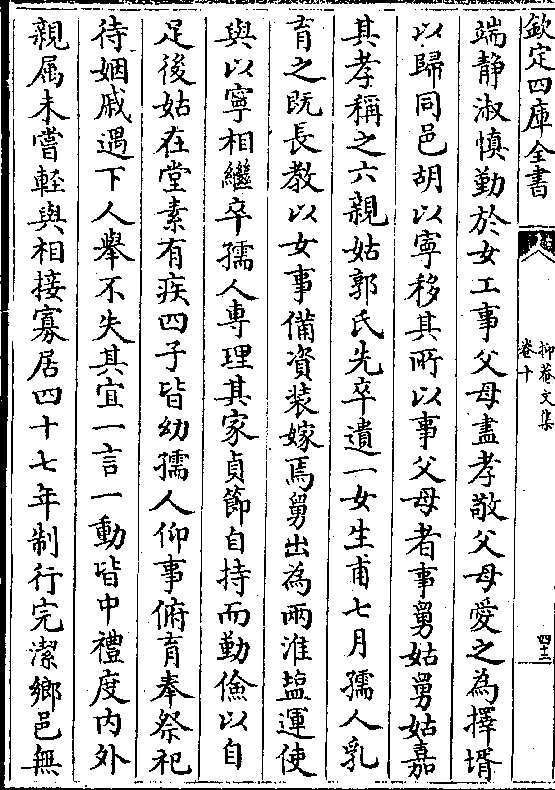 欽定四庫全書
抑菴文集
卷十
四十二
端静淑慎勤於女工事父母盡孝敬父母愛之為擇壻
以歸同邑胡以寧移其所以事父母者事舅姑舅姑嘉
其孝稱之六親姑郭氏先卒遺一女生甫七月孺人乳
育之既長教以女事備資装嫁焉舅出為兩淮鹽運使
與以寧相繼卒孺人専理其家貞節自持而勤儉以自
足後姑在堂素有疾四子皆幼孺人仰事俯育奉祭祀
待姻戚遇下人舉不失其宜一言一動皆中禮度内外
親属未嘗輕與相接寡居四十七年制行完潔鄉邑無